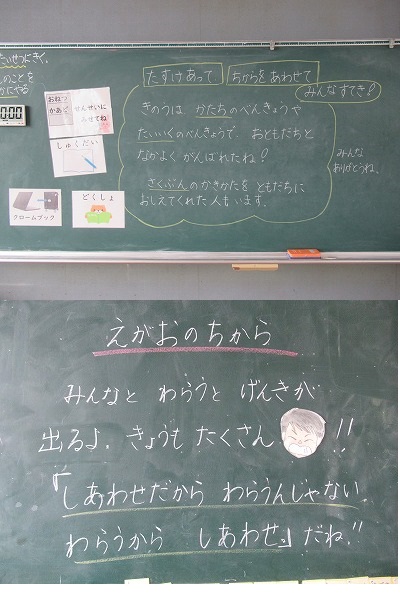 たいせつにきく。
のことを
かにやる
0:00
おねつ
かあど
せんせいに
みせてね
しゅくだい
クロームブック
どくしょ
たすけあって ちからをあわせて
みんなすてき!
きのうは かたちのべんきょうや
たいいくのべんきょうで、おともだちと
なかよく がんばれたね!
さくぶんのかきかたを ともだちに
おしえてくれた人もいます。
みんな
ありがとうね。
えがおのちから
みんなと わらうと げんきが
出るよ。きょうも たくさん!!
『しあわせだから わらうんじゃない。
わらうから しあわせ。』だね!!